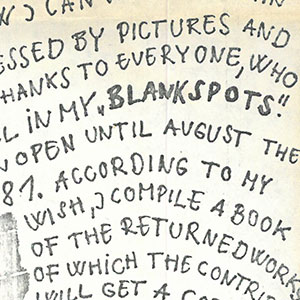 W) CAN
ESSED BY PICTURES AND
HANKS TO EVERYONE, WHO
L IN MY „BLANKSPOTS".
N OPEN UNTIL AUGUST THE
81. ACCORDING TO MY
WISH, J COMPILE A BOOK
OF THE RETURNED WORKS
OF WHICH THE CONTRI
WILL GET A